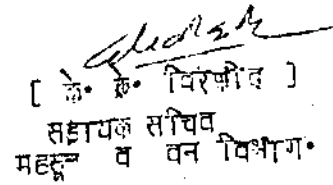 [ के. के. विरणोद ]
सहायक सचिव
महसूल व वन विभाग.